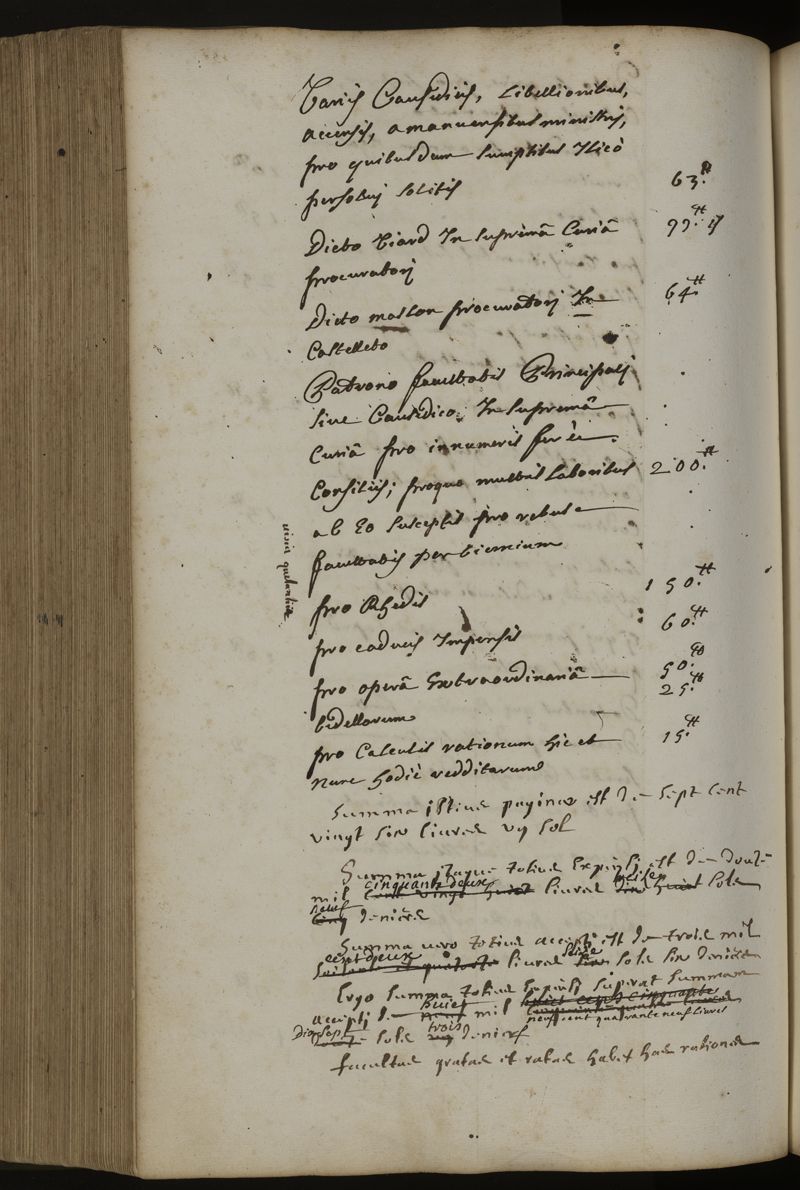 Variis Causidicis, Libellionibus,
accensis, amanuensibus ministris,
pro quibusdam sumptibus Ilico
persolvi solitis 63.ᵗᵗ
Dicto Viard In supremâ Curiâ 99.ᵗᵗ
procuratori
Dicto maslon procuratori In 64.ᵗᵗ
Castelleto
Patrono facultatis Principali
sive Causidico. In supremâ
Curiâ pro innumeris ferè
Consiliis; proque multis laboribus 200.ᵗᵗ
ab Eo susceptis pro rebus
facultatis per biennium
pro Rhedis 150.ᵗᵗ
pro caducis Impensis 60.ᵗᵗ
pro operâ Extraordinariâ 50.ᵗᵗ
25.ᵗᵗ
bidellorum
pro Calculis rationum hic et 15.ᵗᵗ
nunc hodiè redditarum
Summa istius paginae est de sept cent
vingt six livres sol
Summa itaque totius Expensi est de douze
mil cinquante deux livres sols
neuf deniers
Summa vero totius accepti est de trois mil
cent deux livres sols six deniers
Ergo summa totius Expensi superat summam
accepti de mil
neuf cent quarante neuf livres
Dix sept sols trois deniers
facultas gratas et ratas habet has rationes